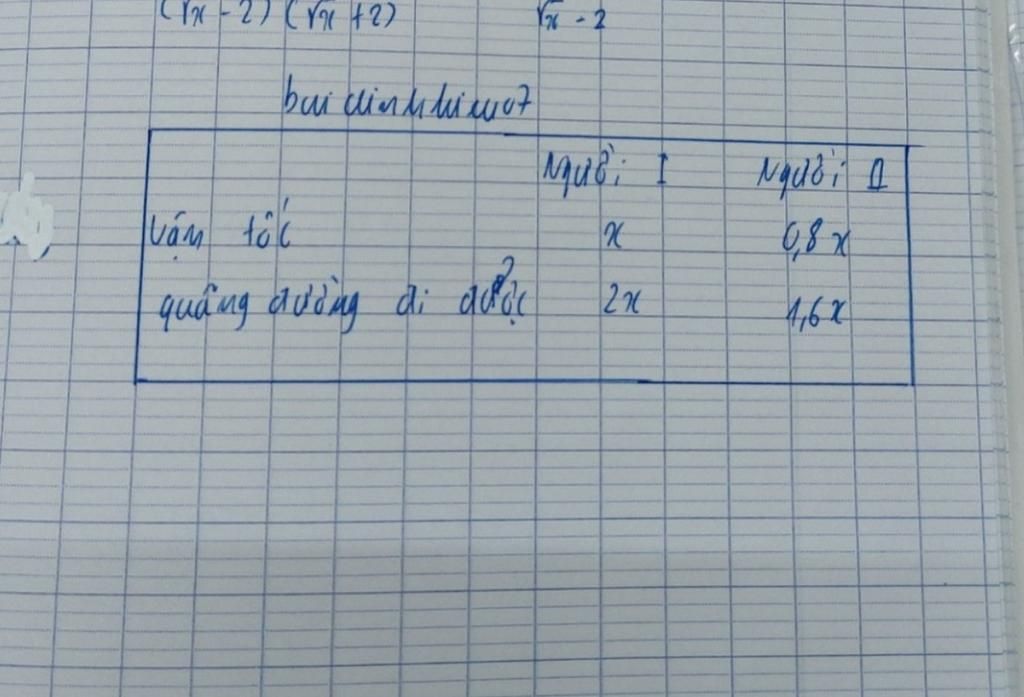 (√x - 2) (√x + 2) √x - 2
Người I Người II
vận tốc x 0,8x
quãng đường đi được 2x 1,6x